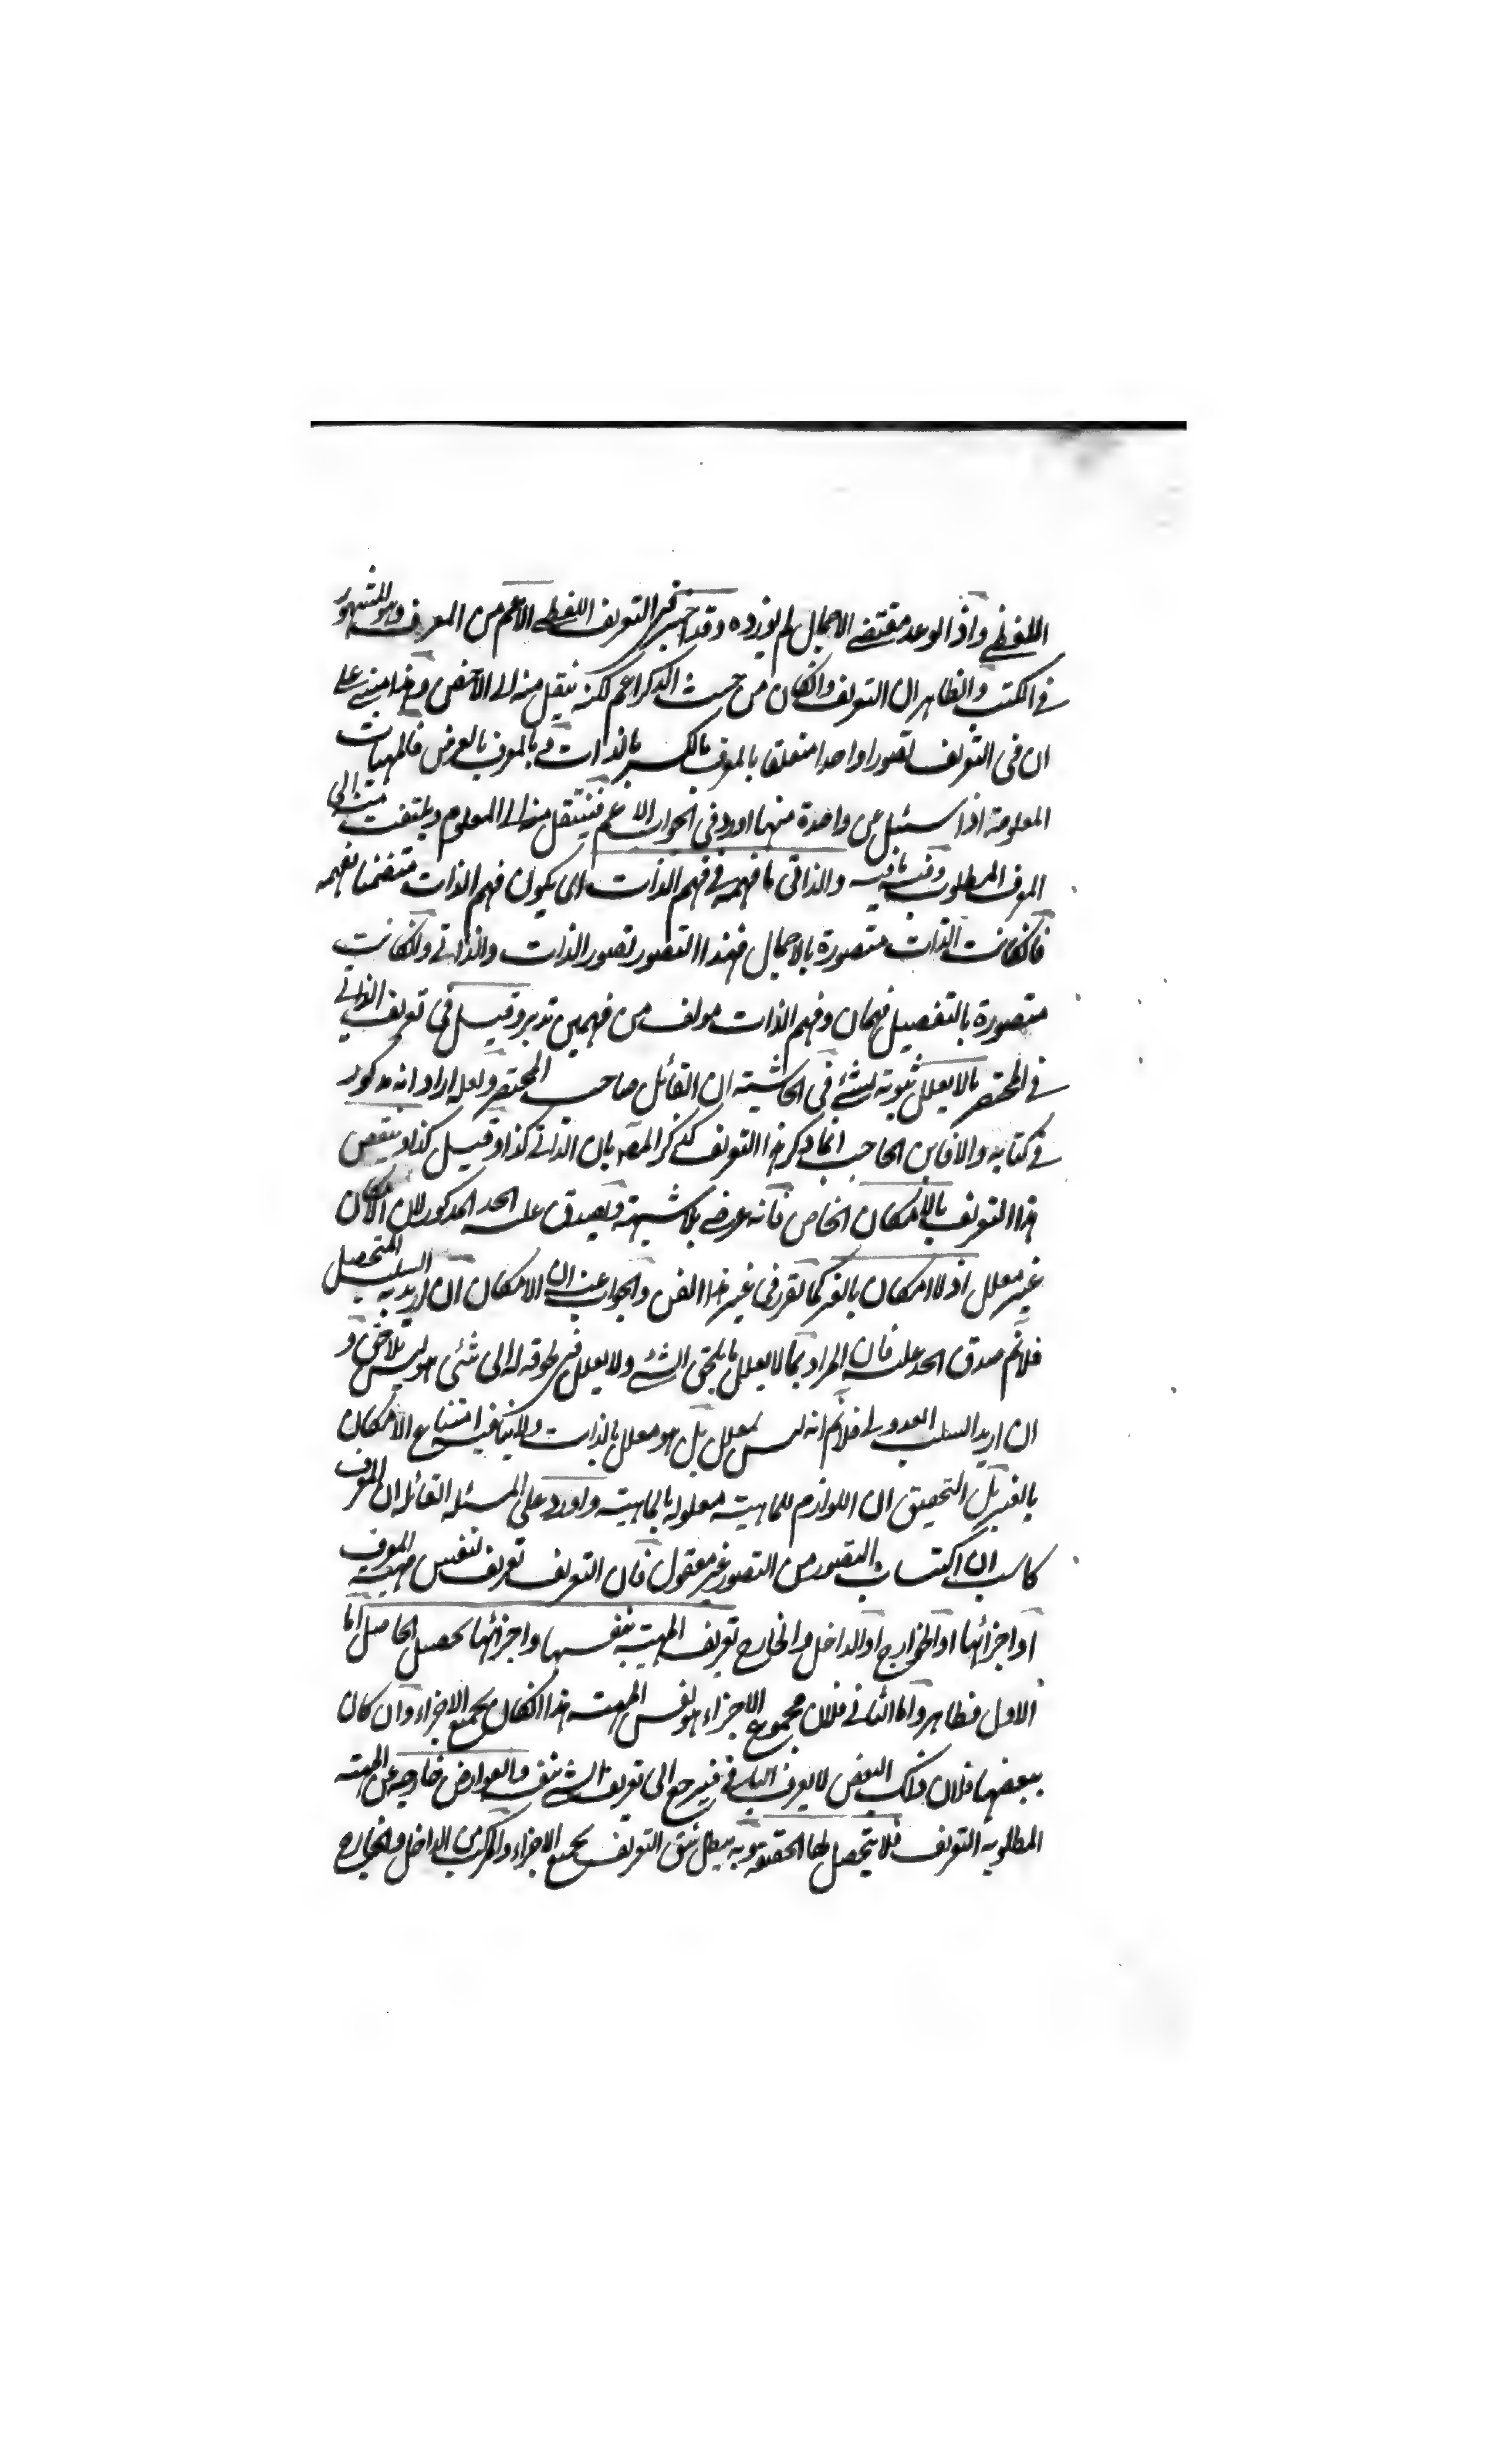 اللفظي واذ الوعد مقتضى الاجمال لم نورده وقد اجيز في التعريف اللفظي الاعم من المعرف وهو المشهور
في الكتب والظاهر ان التعريف وانكان من حيث الذكر اعم لكنه ينتقل منه الى الاخص وهذا مبني على
ان في التعريف تصورا واحدا متعلق بالمعرف بالكسر بالذات وبالمعرف بالعرض فالمهيات
المعلومة اذا سئل عن واحدة منها اورد في الجواب الاعم فينتقل منه الى المعلوم ويلتفت منه الى
المعرف المطلوب وفيه ما فيه والذاتي ما فهمه في فهم الذات اى يكون فهم الذات متضمنا لفهمه
فانكانت الذات متصورة بالاجمال فهذا التصور تصور الذات والذاتي وانكانت
متصورة بالتفصيل فهمان وفهم الذات مولف من فهمين تدبر وقيل في تعريف الذاتي
في المختصر بما لا يعلل ثبوته لشئ في الحاشية ان القائل صاحب المختصر ولعله اراد انه مذكور
في كتابه والا فابن الحاجب انما ذكر هذا التعريف كذكر المص بان الذاتي كذا وقيل كذا وينتقض
هذا التعريف بالامكان الخاص فانه عرضي بلا شبهة ويصدق عليه الحد المذكور لان الامكان
غير معلل اذ لا امكان بالغير كما تقرر في غير هذا الفن والجواب عنه ان الامكان ان اريد به السلب المتحصل
فلانم صدق الحد عليه فان المراد بما لا يعلل ما يلحق الشئ ولا يعلل في لحوقه له الى شئ هو ليس بلاحق و
ان اريد السلب العدولي فلانم انه ليس بمعلل بل هو معلل بالذات ولا ينافيه امتناع الامكان
بالغير بل التحقيق ان اللوازم للماهية معلولة بالماهية واورد على المسئلة القائلة ان المعرف
كاسب ان اكتساب التصور من التصور غير معقول فان التعريف تعريف بنفس مهية المعرف
او اجزائها او الخوارج او الداخل والخارج تعريف المهية بنفسها واجزائها تحصيل الحاصل اما
الاول فظاهر واما الثاني فلان مجموع الاجزاء هو نفس المهية هذا انكان بجميع الاجزاء وان كان
ببعضها فلان ذلك البعض لا يعرف الباقي فيرجع الى تعريف الشئ بنفسه والعوارض خارجة عن المهية
المطلوبة التعريف فلا يتحصل بها الحقيقة وبه يبطل شق التعريف بجميع الاجزاء والمركب من الداخل والخارج